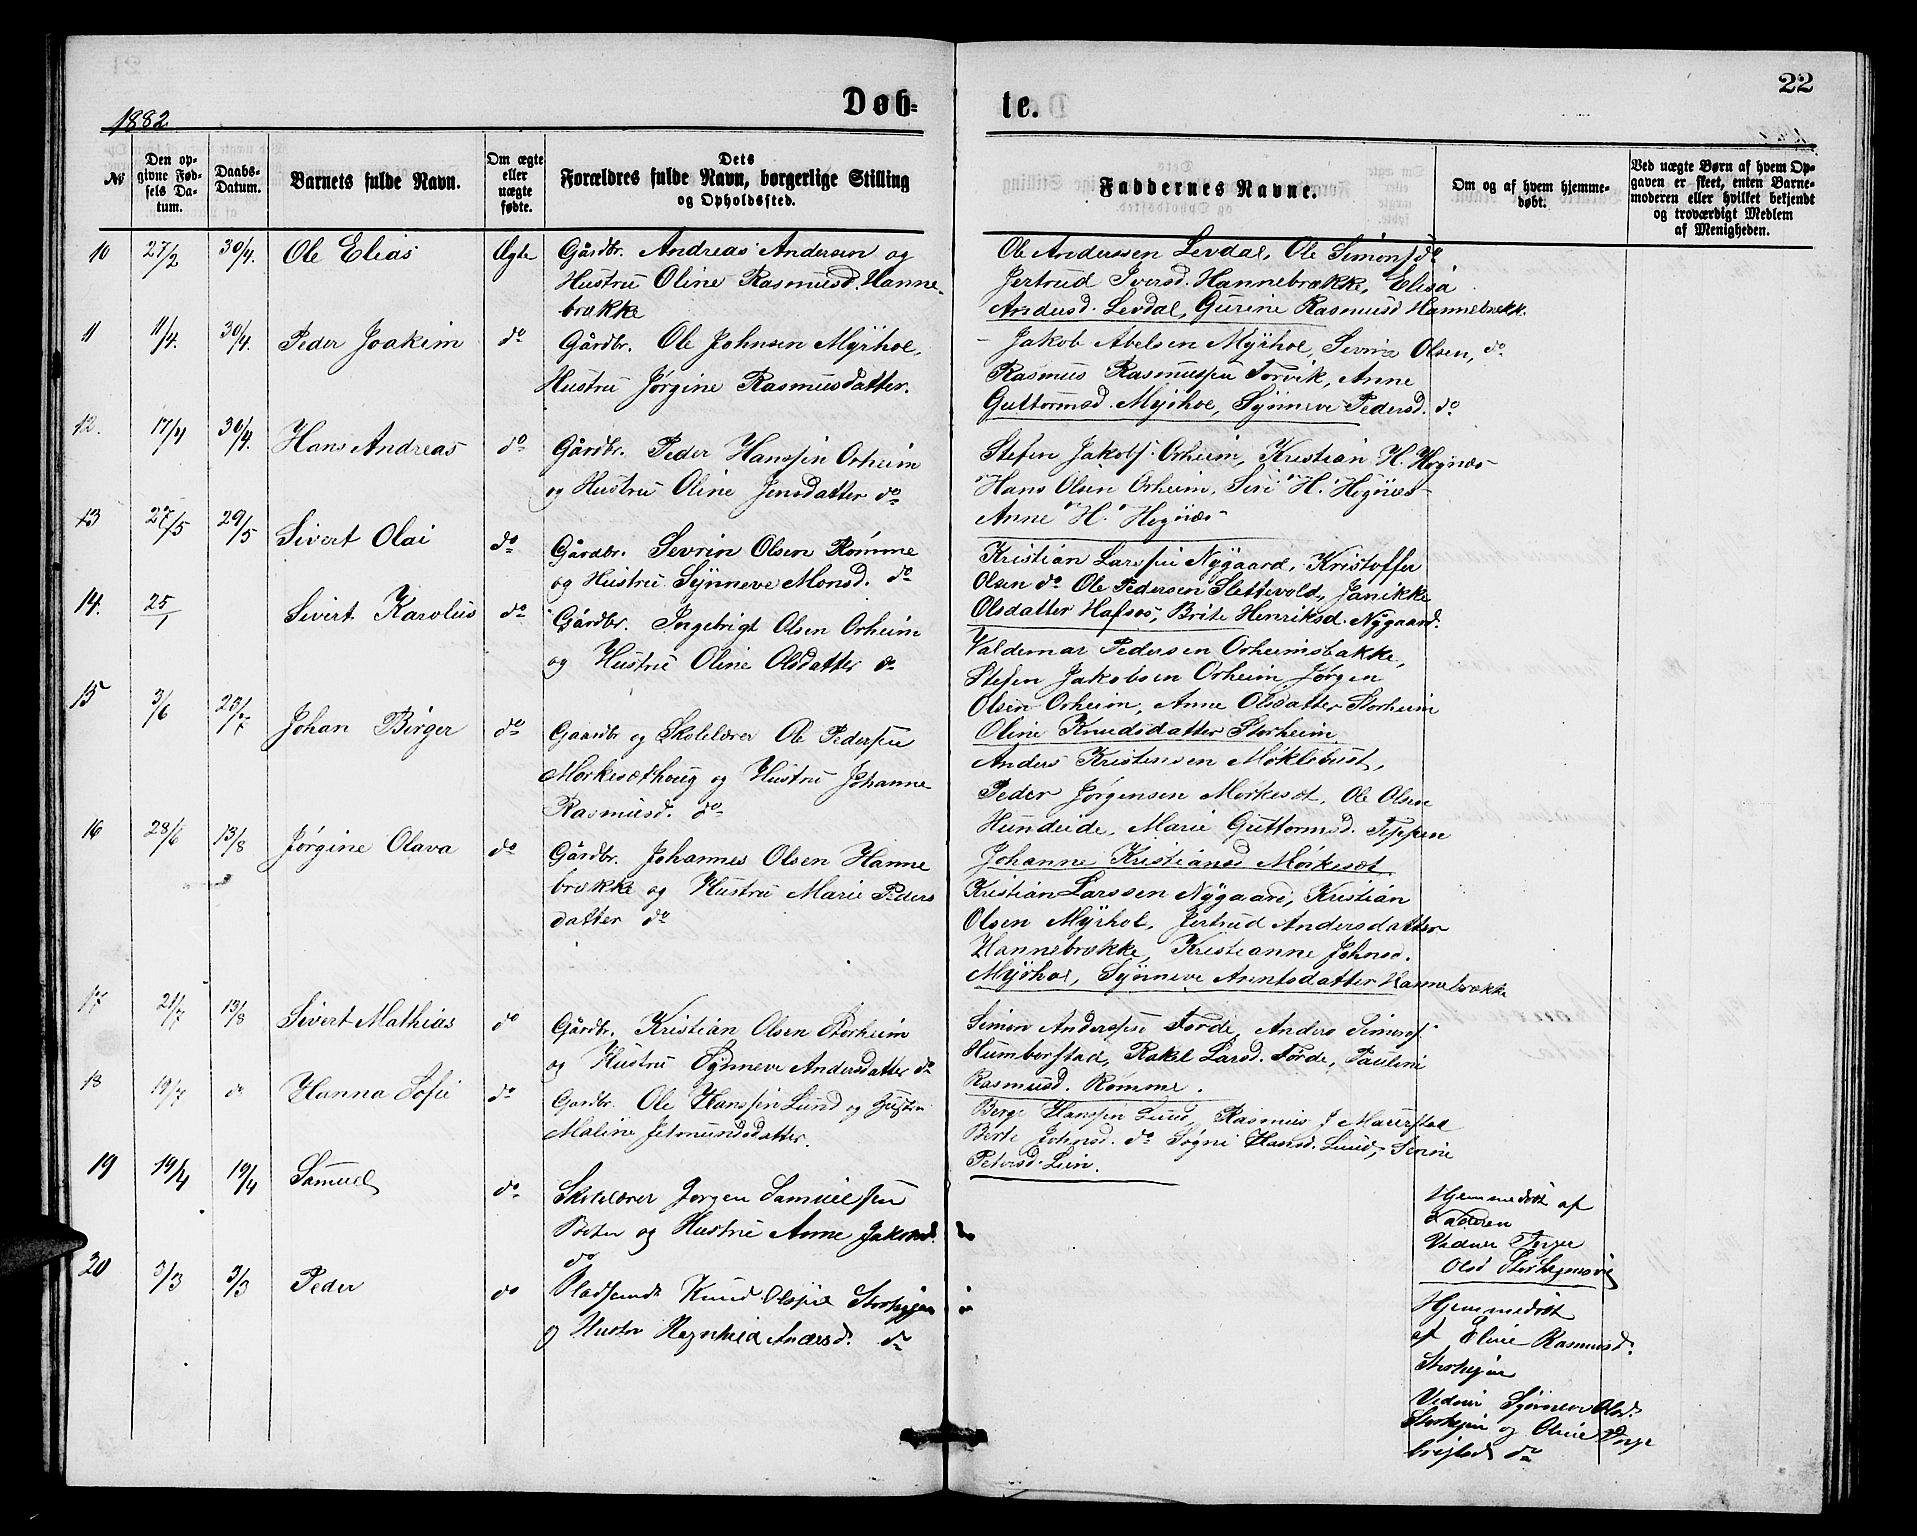 22
1882
Døb-
te.
№
Den op-
givne Fød-
sels Da-
tum.
Daabs-
Datum.
Barnets fulde Navn.
Om ægte
eller
uægte
fødte.
Dets
Forældres fulde Navn, borgerlige Stilling
og Opholdssted.
Faddernes Navne.
Om og af hvem hjemme-
døbt.
Ved uægte Børn af hvem Op-
gaven er skeet, enten Barne-
moderen eller hvilket bekjendt
og troværdigt Medlem
af Menigheden.
10 27/2 30/4. Ole Elias Ægte
Gårdbr. Andreas Andersen og
Hustru Oline Rasmusd. Hanne-
brække
Ole Anderssen Levdal, Ole Simons do
Jertrud Iversd. Hannebrække, Elisa
Andersd. Levdal, Gurine Rasmusd Hannebrekk.
11 11/4. 30/4. Peder Joakim do
Gårdbr. Ole Johnsen Myrhol,
Hustru Jørgine Rasmusdatter.
Jakob Abelsen Myrhol, Sevrin Olsen, do
Rasmus Rasmussen Torvik, Anne
Guttormsd. Myrhol, Synneve Pedersd. do
12. 17/4 30/4. Hans Andreas do
Gårdbr. Peder Hanssen Orheim
og Hustru Oline Jensdatter do
Stefen Jakobs. Orheim, Kristian H. Hognæs
Hans Olsen Orheim, Siri H. Hognæs
Anne H. Hognæs
13 27/5 29/5 Sivert Olai do
Gårdbr. Sevrin Olsen Rømme
og Hustru Synneve Monsd. do
Kristian Larssen Nygaard, Kristoffer
Olsen do Ole Pedersen Slettevold, Janikke
Olsdatter Hafsos, Brite Henriksd. Nygaard.
14. 25/1 Sivert Karolus do
Gårdbr. Ingebrigt Olsen Orheim
og Hustru Oline Olsdatter do
Valdemar Pedersen Orheimsbakke,
Stefen Jakobsen Orheim Jørgen
Olsen Orheim, Anne Olsdatter Storheim
Oline Knudsdatter Storheim
15 3/6 23/7 Johan Birger do
Gaardbr og Skolelærer Ole Pederssen
Morkesæthoug og Hustru Johanne
Rasmusd. do
Anders Kristensen Møklebust,
Peder Jørgensen Mørkesæt, Ole Olsen
Hundeide, Marie Guttormsd. Teppen
Johanne Kristiansd Mørkesæt
16 28/6 13/8 Jørgine Olava do
Gårdbr. Johannes Olsen Hanne
brække og Hustru Marie Peders
datter do
Kristian Larssen Nygaard, Kristian
Olsen Myrhol, Jertrud Andersdatter
Hannebrække, Kristianne Johnsd.
Myrhol, Synneve Arentsdatter Hannebrække
17 21/7 13/8 Sivert Mathias do
Gårdbr. Kristian Olsen Storheim
og Hustru Synneve Andersdatter do
Simon Anderssen Førde, Anders Simons.
Humborstad, Rakel Larsd. Førde, Pauline
Rasmusd. Rømme.
18 19/7 do Hanna Sofie do
Gardbr. Ole Hanssen Lund og Hustru
Maline Jetmundsdatter.
Berge Hanssen Lund, Rasmus J Maurstad
Berte Johnsd. do Søgni Hansd. Lund,
Petersd.
19 19/4 19/4 Samuel do
Skolelærer Jørgen Samuelssen
og Hustru Anne Jakobsd.
do
Hjemmedøbt af
Faderen
Vidner
Olsd
20 3/3 3/3 Peder do
Pladsemd. Knud Olssen
og Hustru Andersd. do
Hjemmedøbt
af Eline Rasmusd.
Vidner Synneve Olsd.
og Oline
do